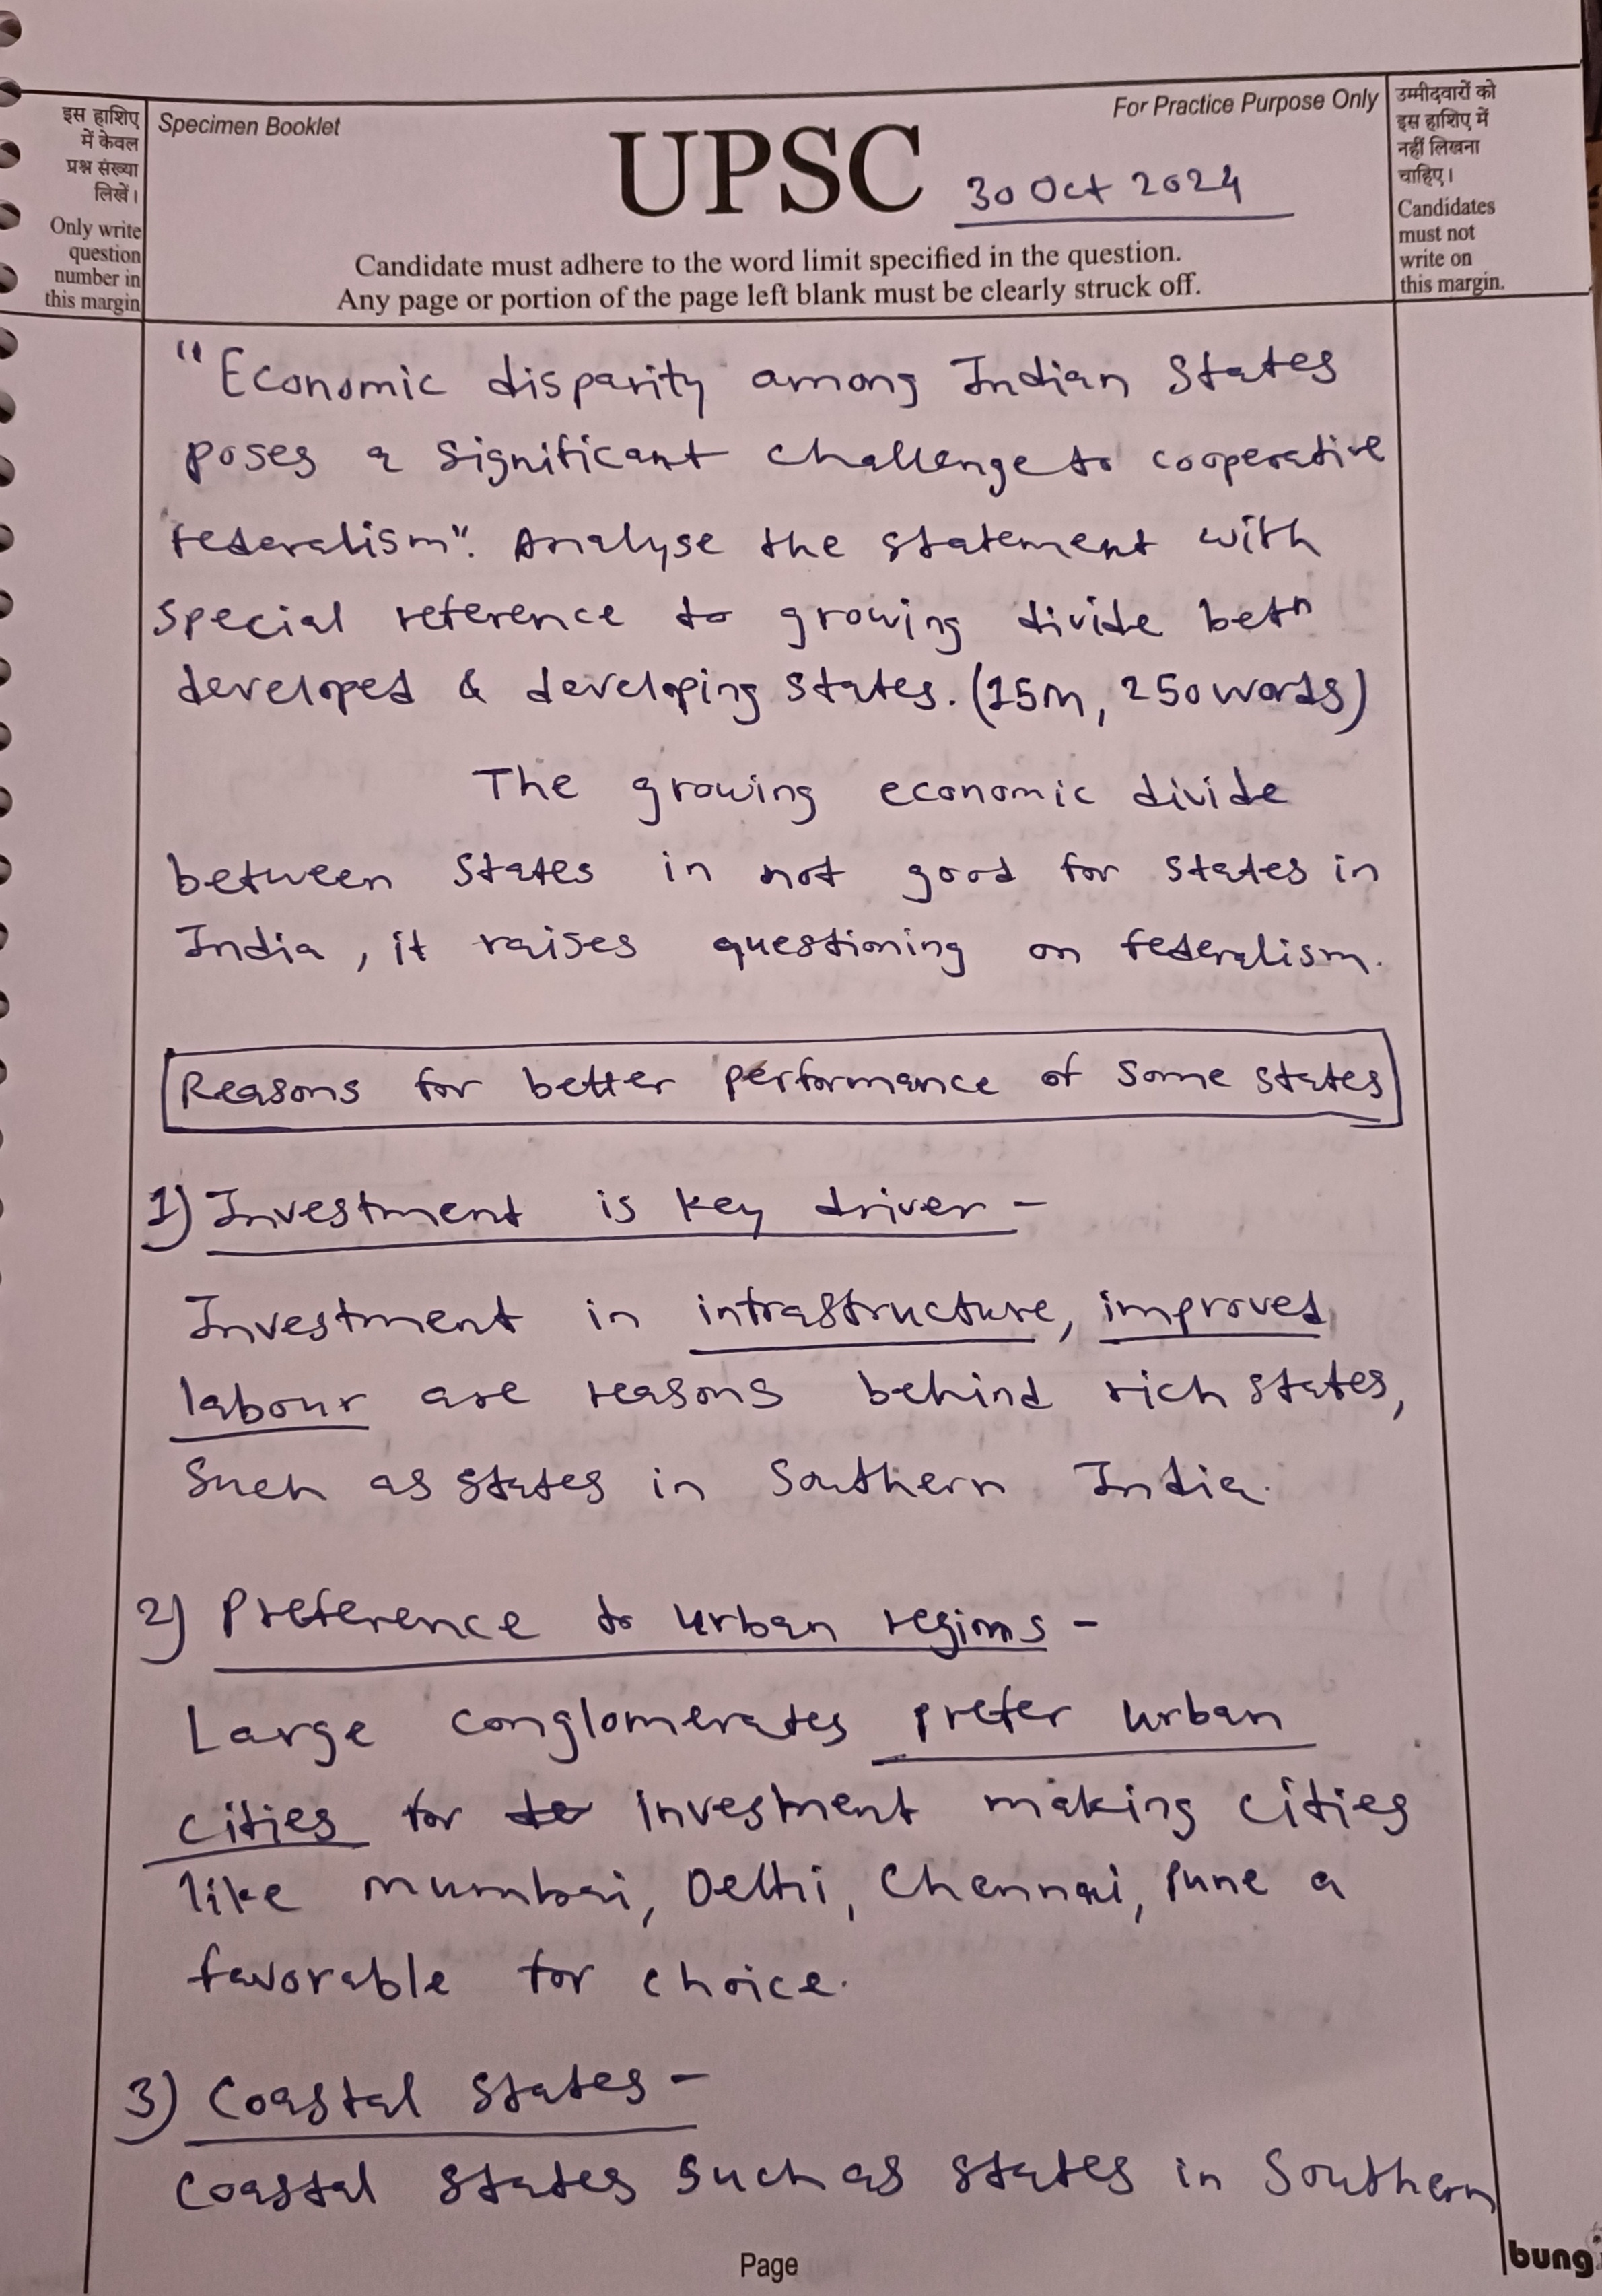 इस हाशिए
में केवल
प्रश्न संख्या
लिखें।
Only write
question
number in
this margin
Specimen Booklet
For Practice Purpose Only
UPSC
30 Oct 2024
Candidate must adhere to the word limit specified in the question.
Any page or portion of the page left blank must be clearly struck off.
उम्मीदवारों को
इस हाशिए में
नहीं लिखना
चाहिए।
Candidates
must not
write on
this margin.
"Economic disparity among Indian States
poses a significant challenge to cooperative
federalism". Analyse the statement with
special reference to growing divide betn
developed & developing states. (15m, 250 words)
The growing economic divide
between States in not good for states in
India, it raises questioning on federalism.
Reasons for better performance of some states
1) Investment is key driver -
Investment in infrastructure, improved
labour are reasons behind rich states,
Such as states in Southern India.
2) Preference to urban regions -
Large conglomerates prefer urban
cities for to investment making cities
like Mumbai, Delhi, Chennai, Pune a
favorable for choice.
3) Coastal States -
Coastal states such as states in Southern
Page
bung